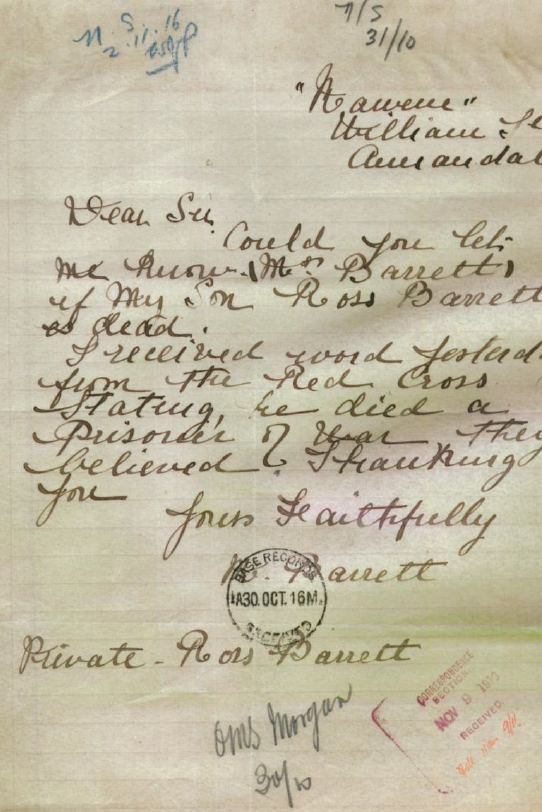 2.11.16
7/S
31/10
"Hawene"
William St
Annandal
Dear Sir
Could you let
me know (Mrs Barrett)
if My Son Ross Barrett
is dead.
I received word yesterd
from the Red Cross
Stating, he died a
Prisoner of War they
believed. Thanking
you
yours Faithfully
M. Barrett
BASE RECORDS
A30.OCT.16M.
RECEIVED
Private - Ross Barrett
OMS Morgan
30/10
CORRESPONDENCE
SECTION.
NOV 9 1916
RECEIVED